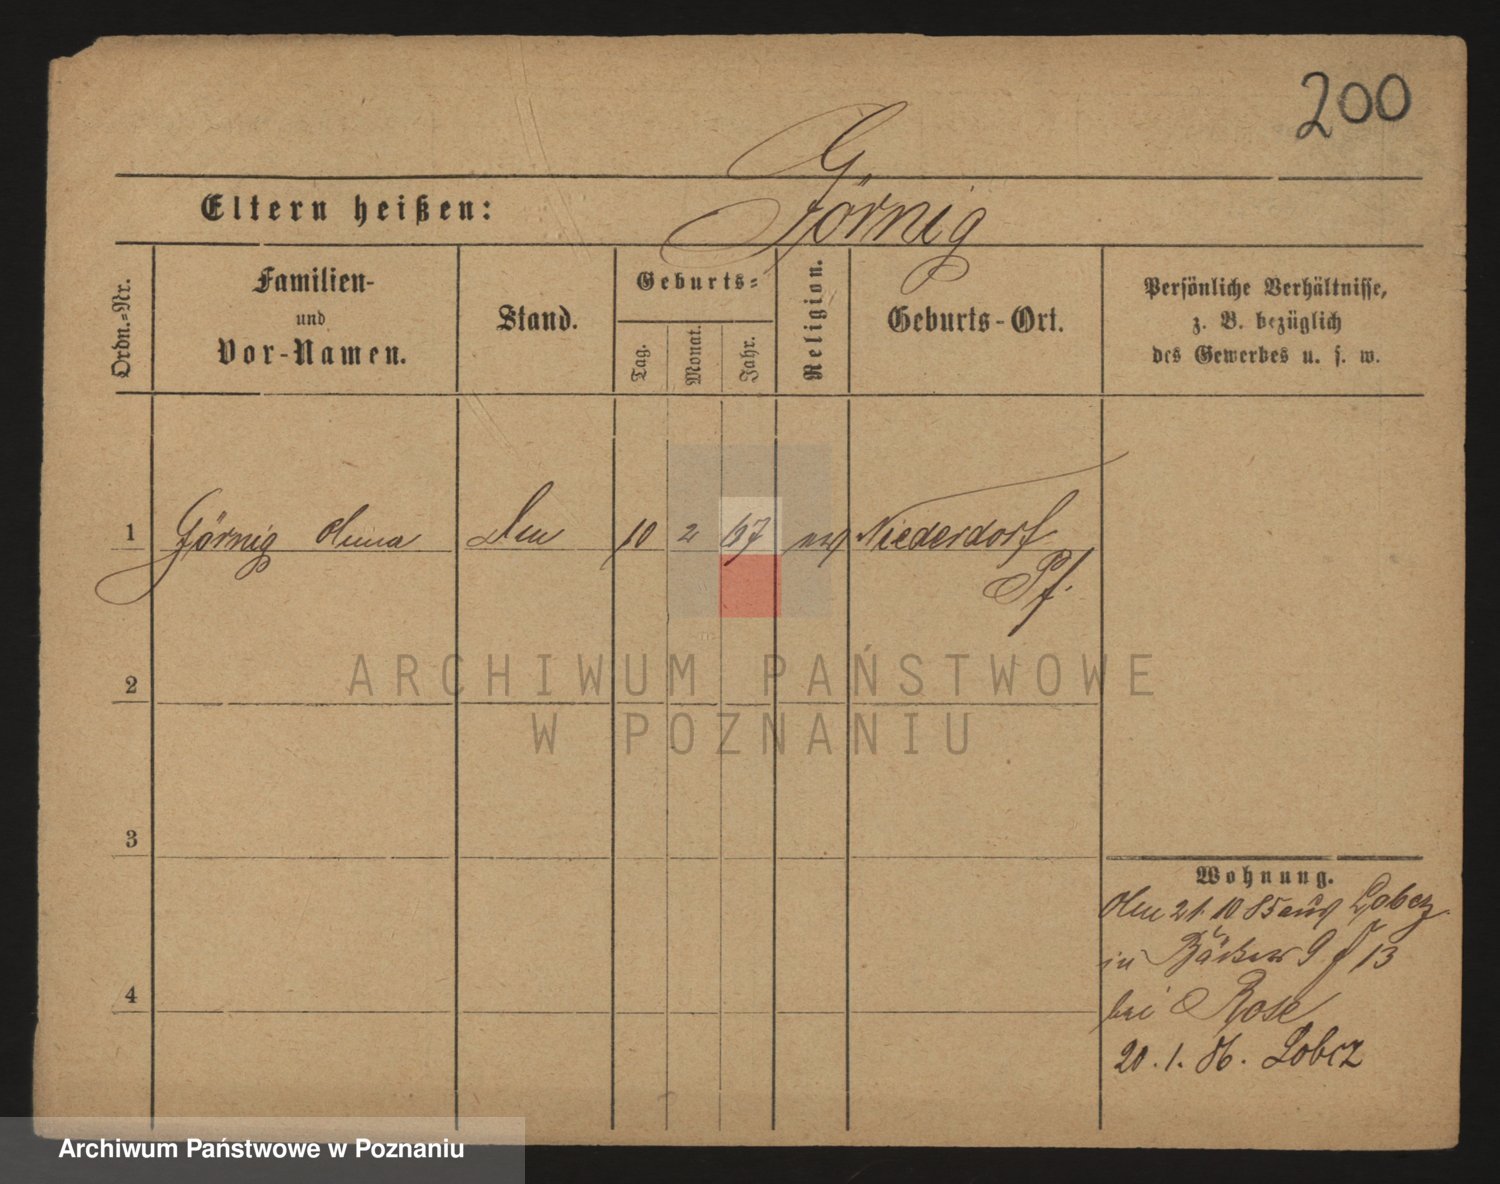 200
G
Eltern heißen: Görnig
Ordn.-Nr.
Familien-
und
Vor-Namen.
Stand.
Geburts-
Tag.
Monat.
Jahr.
Religion.
Geburts-Ort.
Persönliche Verhältnisse,
z. B. bezüglich
des Gewerbes u. s. w.
1 Görnig 10 2 67 ev Niederdorf
Pf.
2
3
4
Wohnung.
21. 10 85 aus Lobez
in Bäcker 9 13
bei Rose
20. 1. 86. Lobez
ARCHIWUM PAŃSTWOWE
W POZNANIU
Archiwum Państwowe w Poznaniu